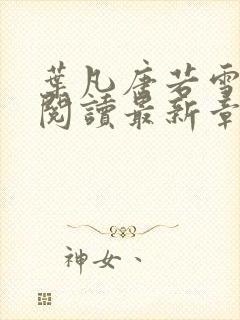 葉凡唐若雪
閱讀最新章
神女、